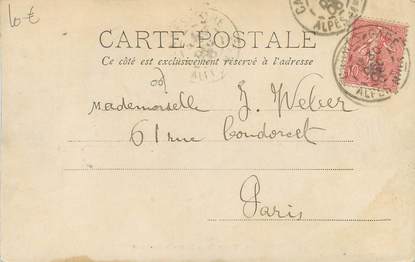 10 €
CARTE POSTALE
Ce côté est exclusivement réservé à l'adresse
Mademoiselle J. Weber
61 rue Condorcet
Paris
ALPES